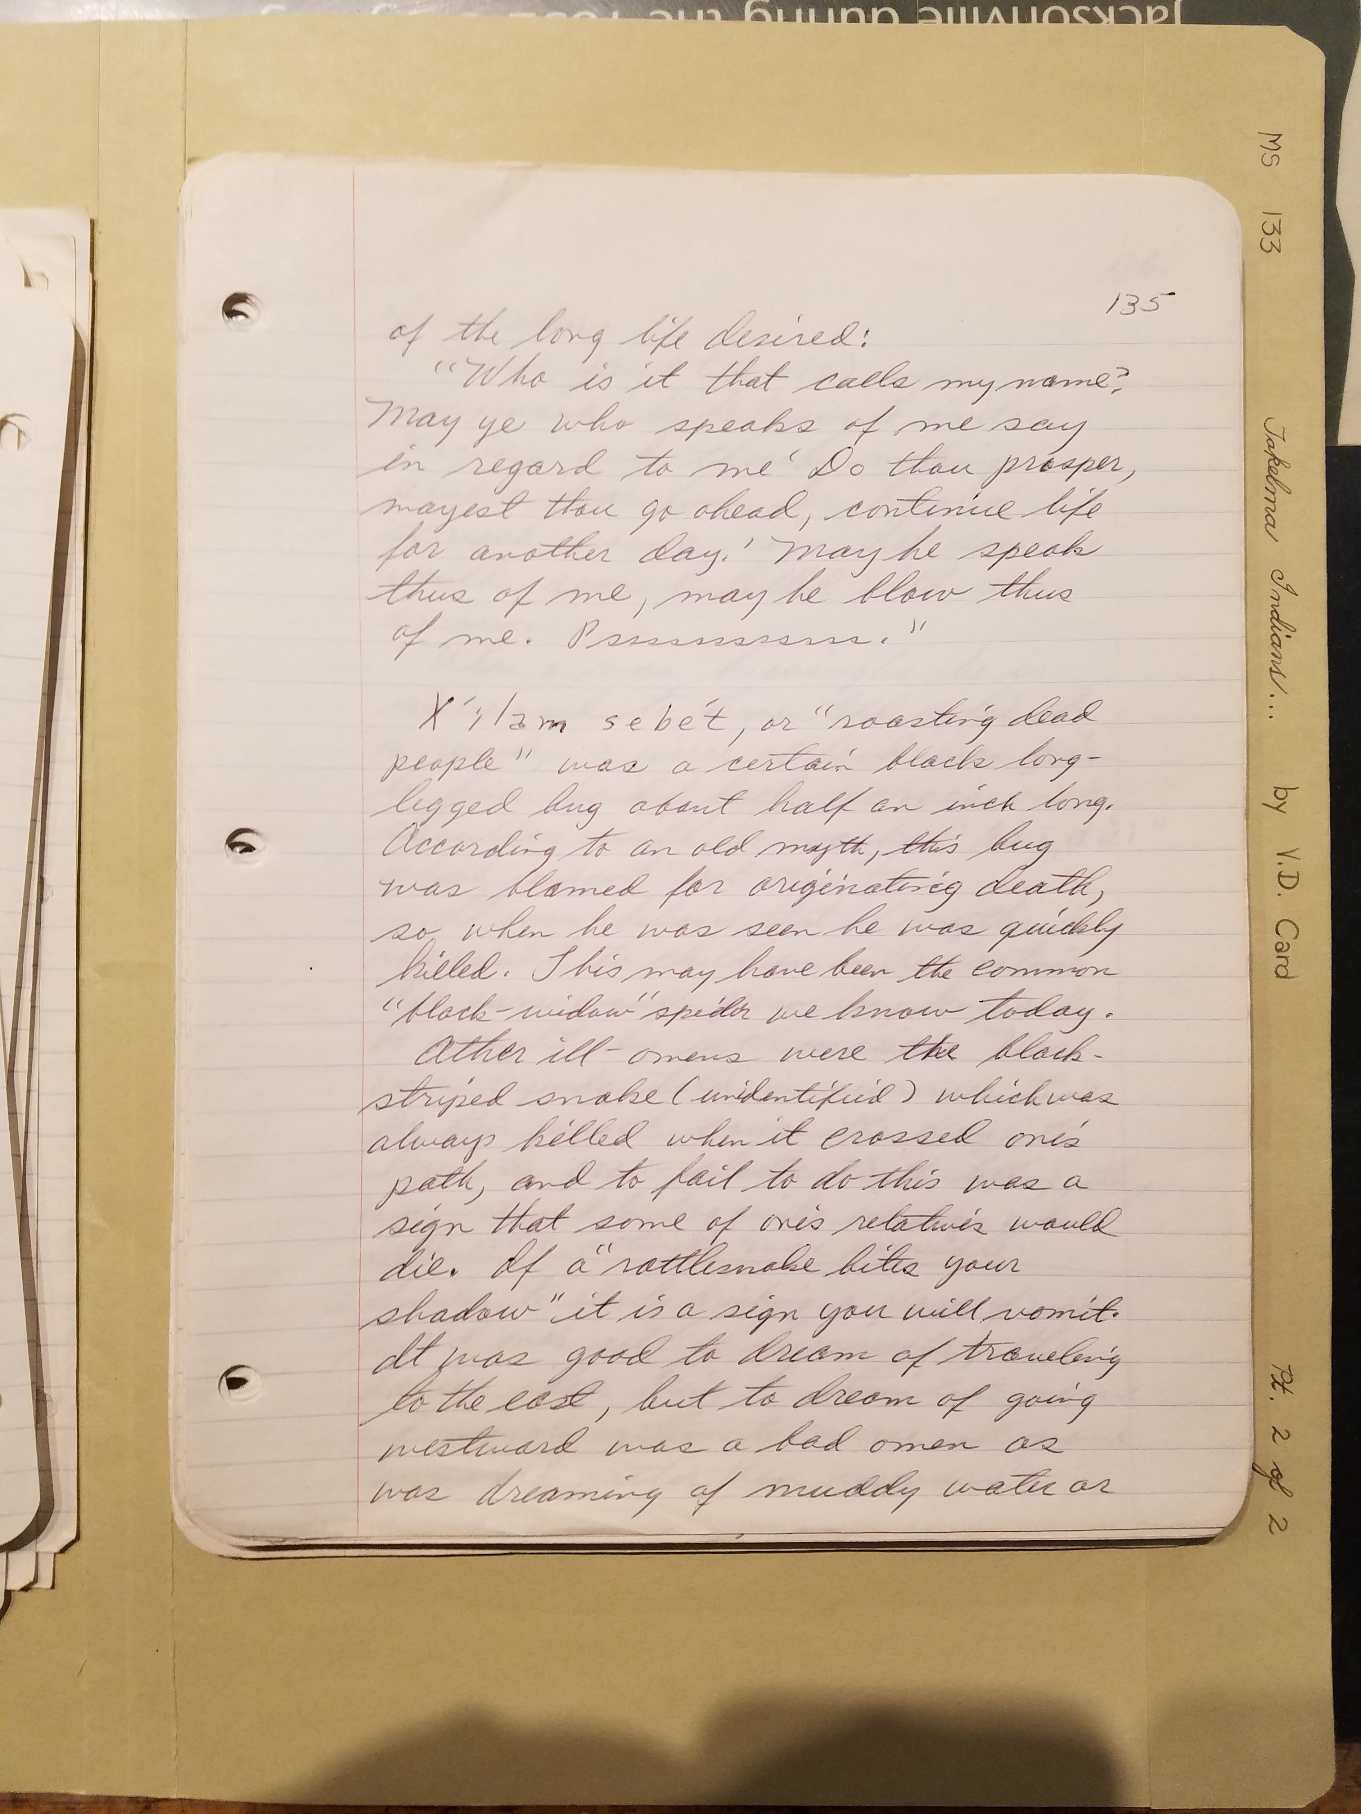 Jacksonville during the
MS 133 Takelma Indians... by V.D. Card Pt. 2 of 2
135
of the long life desired:
"Who is it that calls my name?
May ye who speaks of me say
in regard to me 'Do thou prosper,
mayest thou go ahead, continue life
for another day.' May he speak
thus of me, may he blow thus
of me. Psssssssssss."
X'ilam sebe't, or "roasting dead
people" was a certain black long-
legged bug about half an inch long.
According to an old myth, this bug
was blamed for originating death,
so when he was seen he was quickly
killed. This may have been the common
"black-widow" spider we know today.
Other ill-omens were the black-
striped snake (unidentified) which was
always killed when it crossed one's
path, and to fail to do this was a
sign that some of one's relative's would
die. If a "rattlesnake bites your
shadow" it is a sign you will vomit.
It was good to dream of traveling
to the east, but to dream of going
westward was a bad omen as
was dreaming of muddy water or